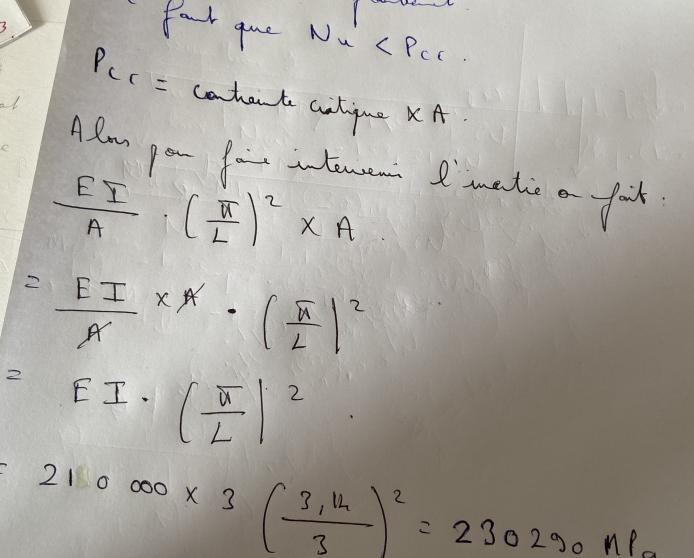 faut que Nu < Pcr.
Pcr = contrainte critique x A.
Alors pour faire intervenir l'inertie on fait :
EI/A . (π/L)² x A.
= EI/A x A . (π/L)²
= EI . (π/L)².
= 210 000 x 3 (3,14/3)² = 230290 MPa